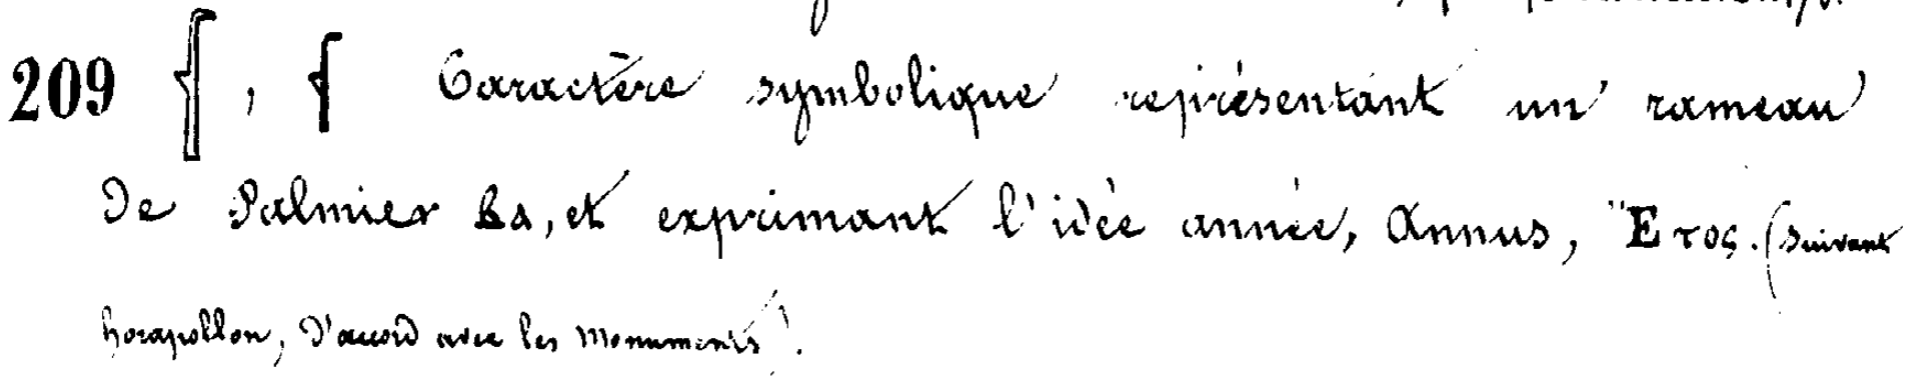 209 𓆳, 𓆳 Caractère symbolique représentant un rameau
De Palmier Ba, et exprimant l'idée année, Annus, Ἔτος. (suivant
horapollon, D'accord avec les Monuments).